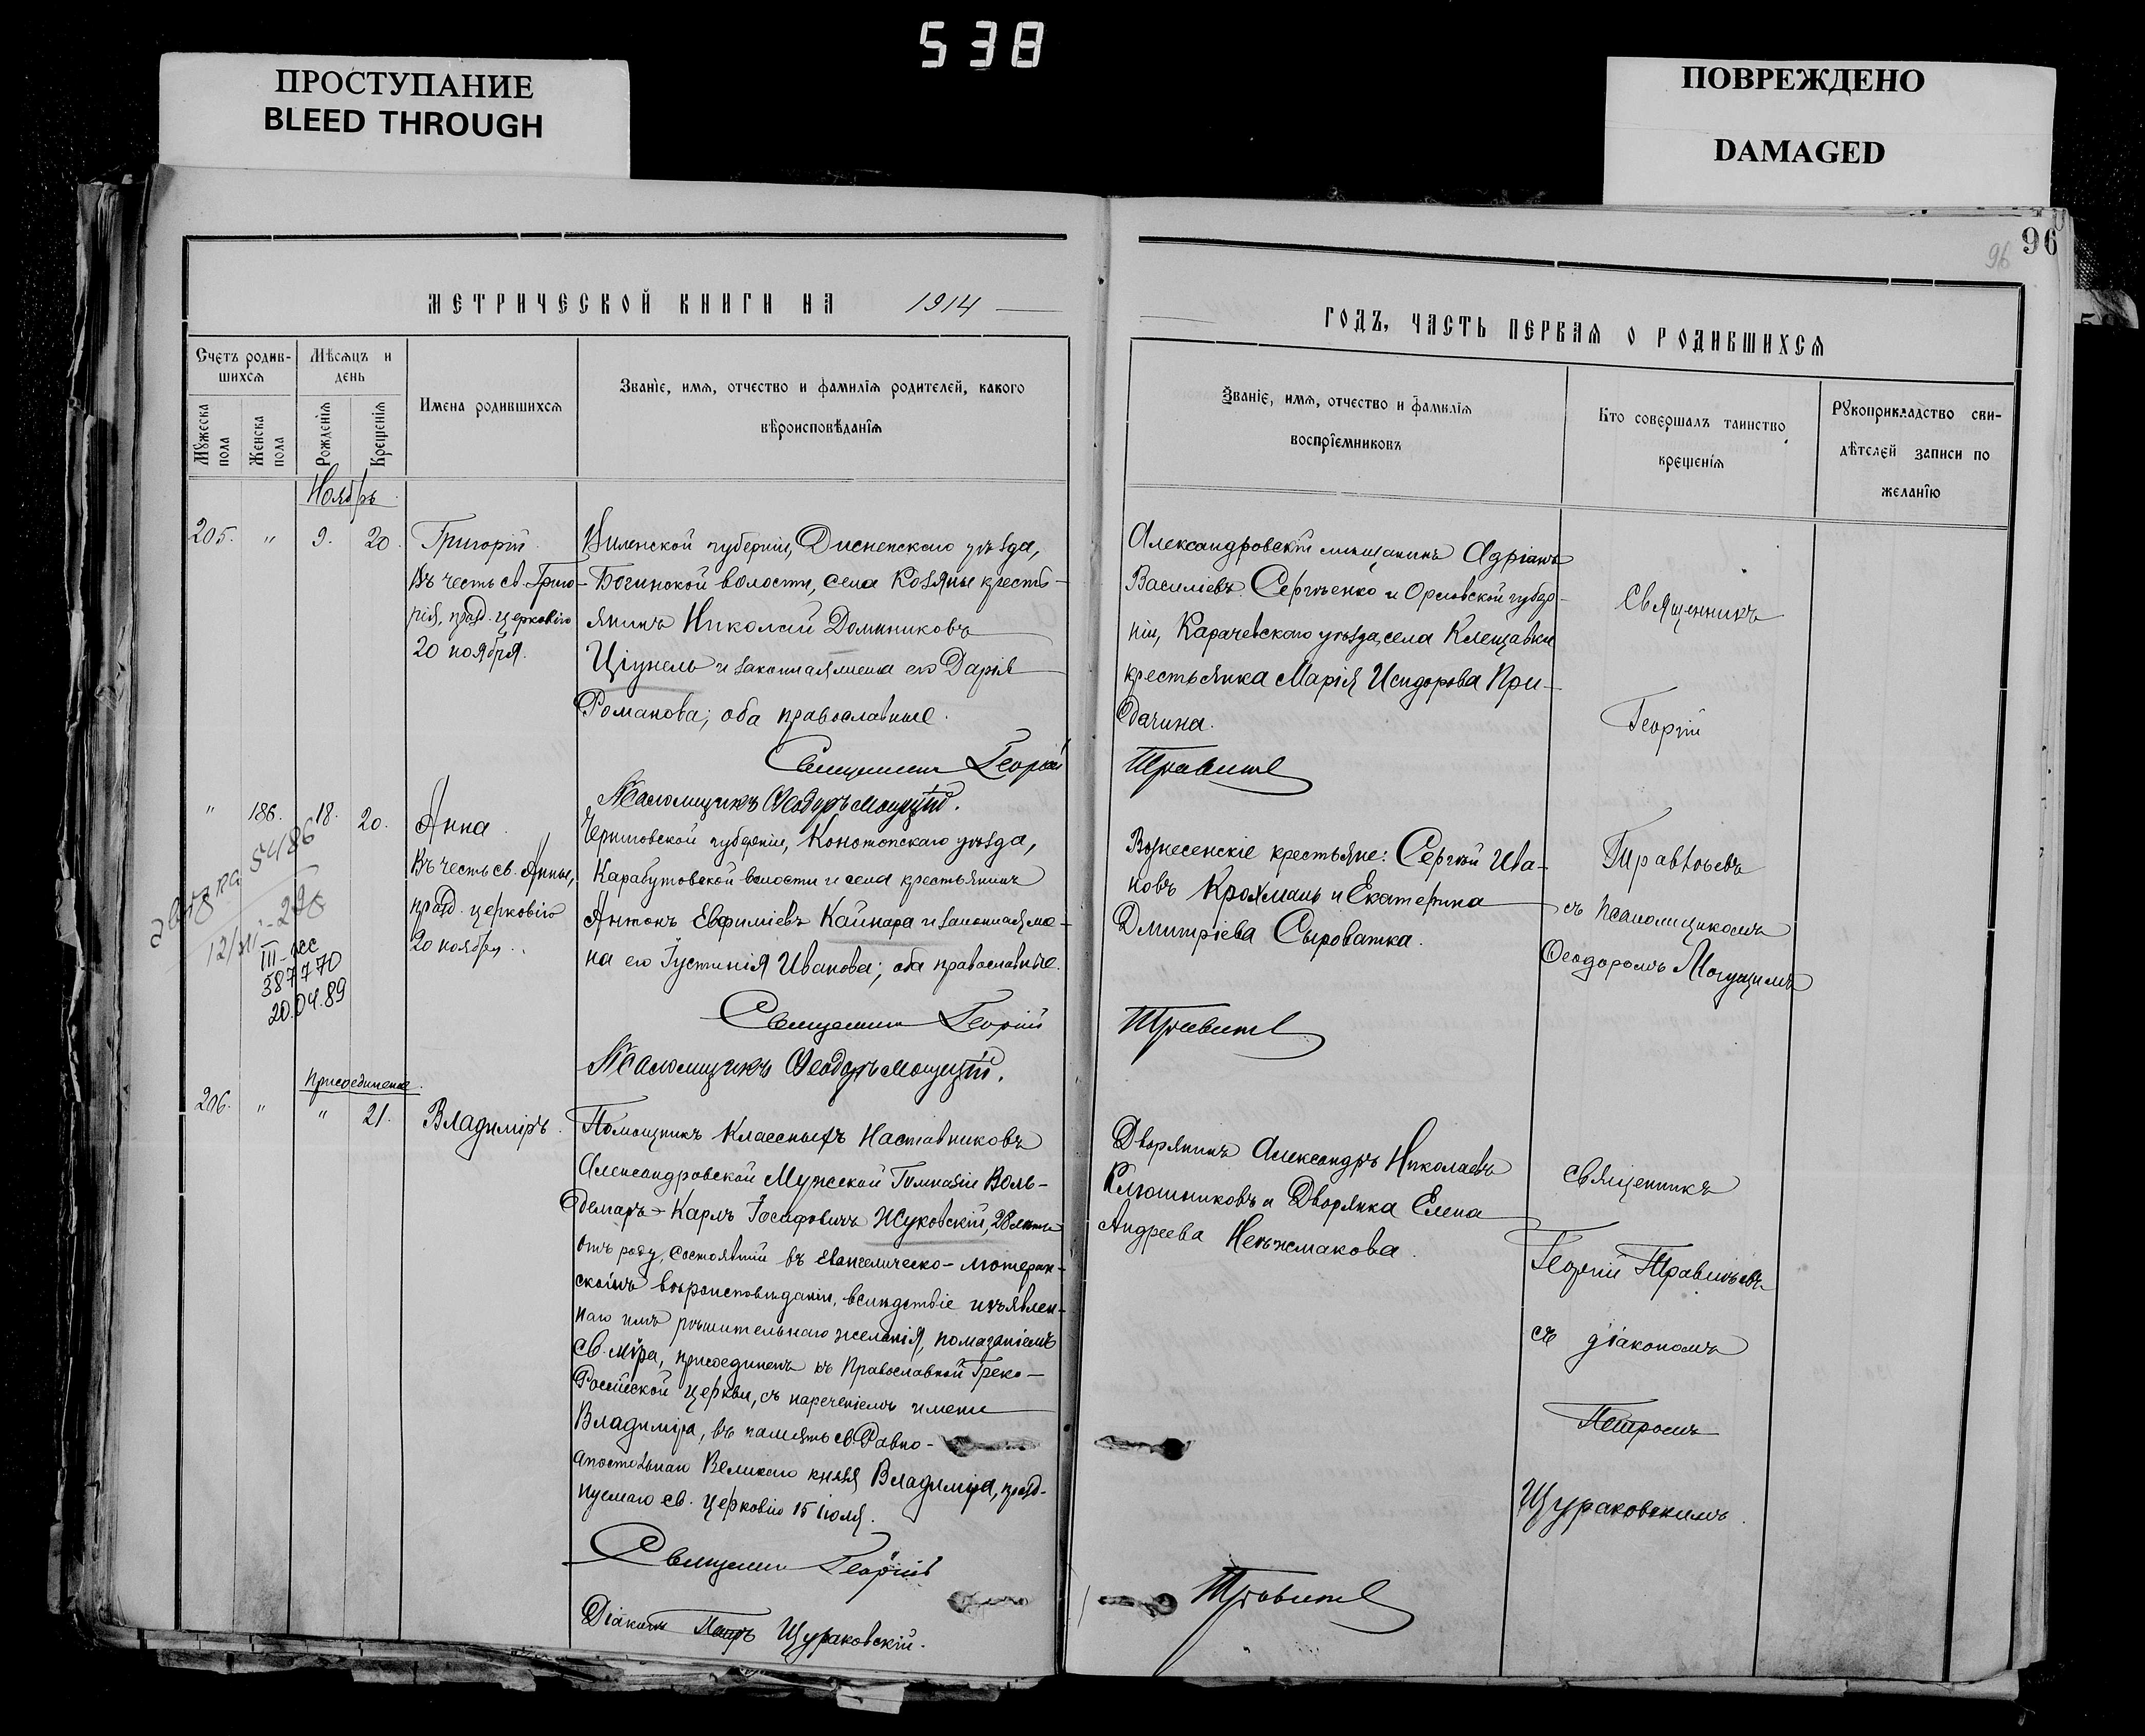 538
ПРОСТУПАНИЕ
BLEED THROUGH
ПОВРЕЖДЕНО
DAMAGED
96
96
МЕТРИЧЕСКОЙ КНИГИ НА 1914
Счетъ родив-
шихся
Мѣсяцъ и
день
Мужеска
пола
Женска
пола
Рожденія
Крещенія
Имена родившихся
Званіе, имя, отчество и фамилія родителей, какого
вѣроисповѣданія
Ноябрь
205. " 9. 20.
Григорій.
Въ честь св. Григо-
рія, празд. церковію
20 ноября.
Виленской губерніи, Дисненскаго уѣзда,
Богинской волости, села Козяны кресть-
янинъ Николай Доминиковъ
Ціунель и законная жена его Дарія
Романова; оба православные.
Священникъ Георгій
Псаломщикъ Ѳеодоръ
" 186. 18. 20.
Анна.
Въ честь св. Анны,
празд. церковію
20 ноября.
5486
12/XII-298
III-
387770
20.04.89
Черниговской губерніи, Конотопскаго уѣзда,
Карабутовской волости и села крестьянинъ
Антонъ Евфиміевъ Кайнара и законная же-
на его Іустинія Иванова; оба православные.
Священникъ Георгій
Псаломщикъ Ѳеодоръ
Присоединеніе.
206. " " 21.
Владиміръ.
Помощникъ Классныхъ Наставниковъ
Александровской Мужской Гимназіи Воль-
демаръ-Карлъ Іосафовичъ Жуковскій, 28 лѣтъ
отъ роду, состоявшій въ евангелическо-лютеран-
скомъ вѣроисповѣданіи, вслѣдствіе изъявлен-
наго имъ рѣшительнаго желанія, помазаніемъ
св. мѵра, присоединенъ къ Православной Греко-
Россійской церкви, съ нареченіемъ имени
Владиміра, въ память св. Равно-
апостольнаго Великаго князя Владиміра, празд-
нуемаго св. церковію 15 іюля.
Священникъ Георгій
Діаконъ Петръ Щураковскій.
ГОДЪ, ЧАСТЬ ПЕРВАЯ О РОДИВШИХСЯ
Званіе, имя, отчество и фамилія
воспріемниковъ
Кто совершалъ таинство
крещенія
Рукоприкладство сви-
дѣтелей записи по
желанію
Александровскій мѣщанинъ Адріанъ
Василіевъ Сергѣенко и Орловской губер-
ніи, Карачевскаго уѣзда, села Клещавки
крестьянка Марія Исидорова При-
дачина.
Священникъ
Георгій
Вознесенскіе крестьяне: Сергѣй Ива-
новъ Крохмаль и Екатерина
Дмитріева Сыроватка.
съ псаломщикомъ
Ѳеодоромъ
Дворянинъ Александръ Николаевъ
Ключниковъ и Дворянка Елена
Андреева Неѣжмакова.
священникъ
Георгій
съ діакономъ
Петромъ
Щураковскимъ.